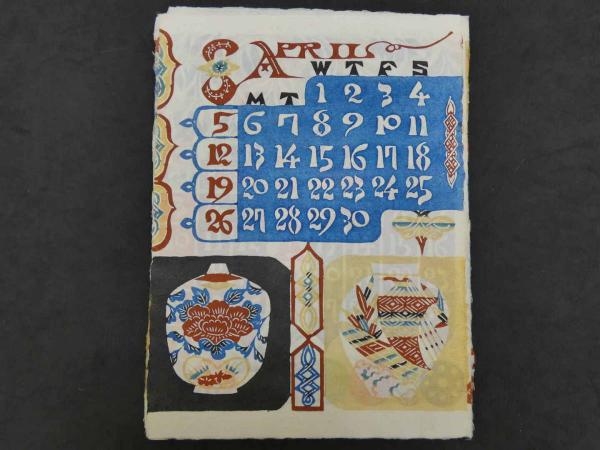 APRIL
S M T W T F S
1 2 3 4
5 6 7 8 9 10 11
12 13 14 15 16 17 18
19 20 21 22 23 24 25
26 27 28 29 30